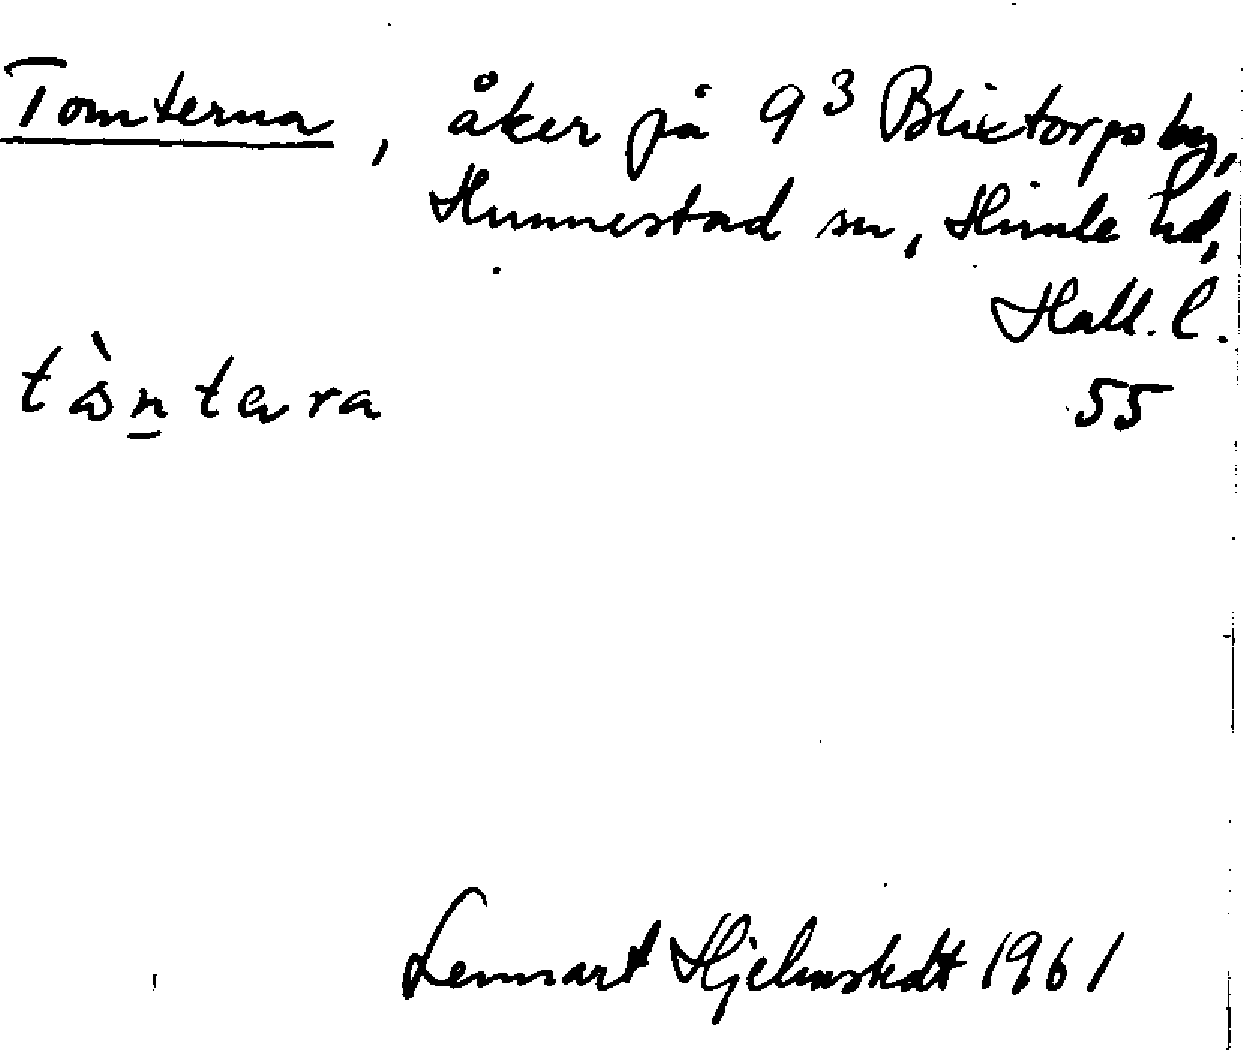 Tomterna, åker på 9³ Blixtorps by,
Hunnestad sn, Himle hd,
Hall. l.
tån̲tara 55
Lennart Hjelmstedt 1961